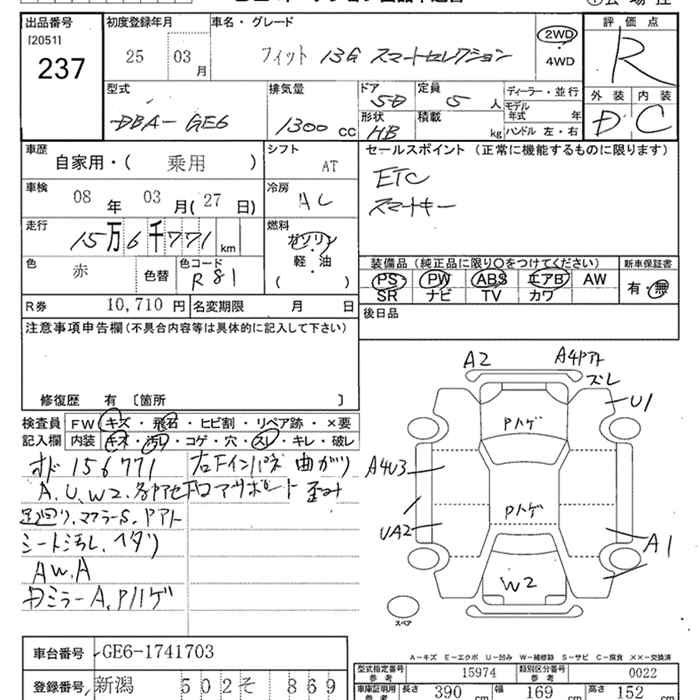 出品番号
[2051]
237
初度登録年月
25 03 月
車名・グレード
フィット 13G スマートセレクション
2WD
・
4WD
評価点
R
外装 内装
D C
型式
DBA-GE6
排気量
1300 cc
ドア
5D
形状
HB
定員
5 人
積載
kg
ディーラー・並行
モデル年式 年
ハンドル 左・右
車歴
自家用・( 乗用 )
シフト
AT
車検
08 年 03 月(27 日)
冷房
AC
走行
15万6千771 km
燃料
ガソリン
・
軽・油
( )
色
赤
色替
色コード
R81
R券 10,710 円
名変期限 月 日
セールスポイント (正常に機能するものに限ります)
ETC
スマートキー
装備品 (純正品に限り〇をつけてください)
PS PW ABS エアB AW
SR ナビ TV カワ
新車保証書
有・無
後日品
注意事項申告欄 (不具合内容等は具体的に記入して下さい)
修復歴 有 〔箇所 〕
検査員記入欄
FW キズ・飛石・ヒビ割・リペア跡・×要
内装 キズ・汚レ・コゲ・穴・スレ・キレ・破レ
オド 156771
A.U.W2.
足廻り.マフラーS.Pアト
シート汚レ.ヘタリ
AW.A
Dミラー A.Pハゲ
右Fインパネ 曲がり
コアサポート 歪み
A2
A4Pアト
ズレ
U1
Pハゲ
A4U3
Pハゲ
UA2
A1
W2
スペア
A－キズ E－エクボ U－凹み W－補修跡 S－サビ C－腐食 ××－交換済
車台番号 GE6-1741703
登録番号 新潟 502 そ 869
型式指定番号 参考 15974
類別区分番号 参考 0022
車庫証明用 参考 長さ 390 cm 幅 169 cm 高さ 152 cm